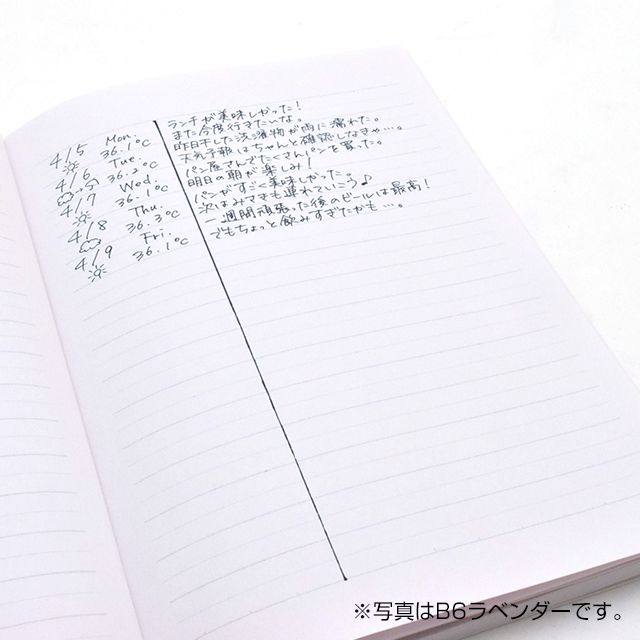 4/5 Mon.
36.1℃
ランチが美味しかった!
また今度行きたいな。
4/6 Tue.
36.2℃
昨日干した洗濯物が雨に濡れた。
天気予報はちゃんと確認しなきゃ…。
4/7 Wed.
36.1℃
パン屋さんでたくさんパンを買った。
明日の朝が楽しみ!
4/8 Thu.
36.3℃
パンがすごく美味しかった。
次はみさきも連れていこう♪
4/9 Fri.
36.1℃
一週間頑張った後のビールは最高!
でもちょっと飲みすぎたかも…。
※写真はB6ラベンダーです。